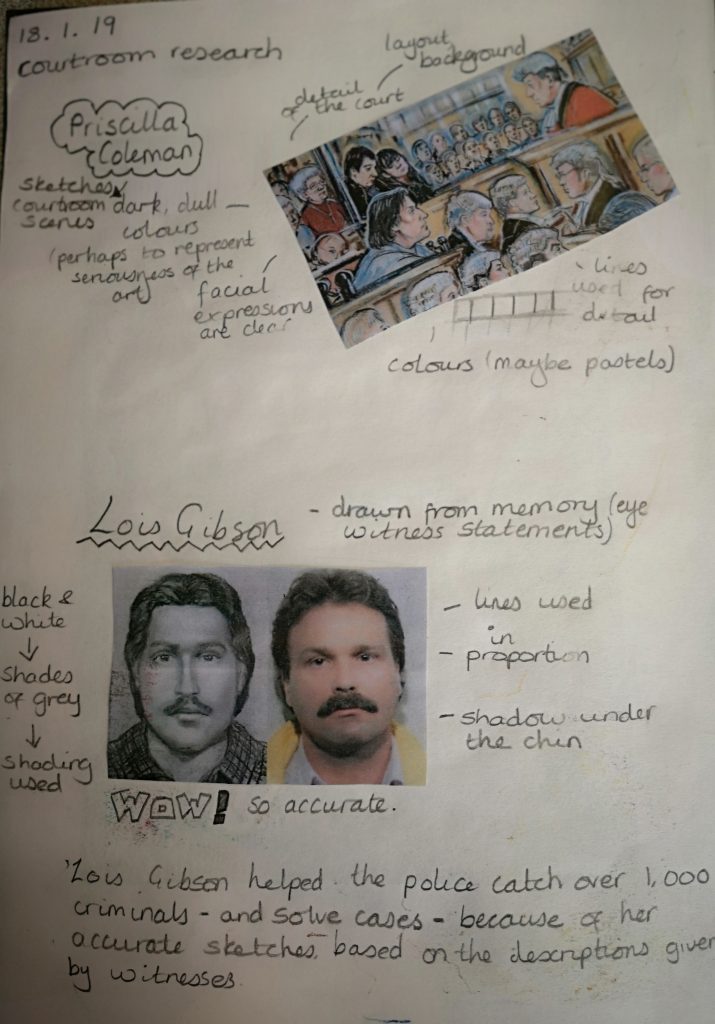 18.1.19
courtroom research
layout
background
detail
of the court
Priscilla
Coleman
sketches
courtroom
scenes
dark, dull
colours
(perhaps to represent
seriousness of the
art)
facial
expressions
are clear
lines
used for
detail
colours (maybe pastels)
Lois Gibson
- drawn from memory (eye
witness statements)
black &
white
↓
shades
of grey
↓
shading
used
- lines used
in
- proportion
- shadow under
the chin
WOW! so accurate.
'Lois Gibson helped the police catch over 1,000
criminals - and solve cases - because of her
accurate sketches based on the descriptions given
by witnesses.